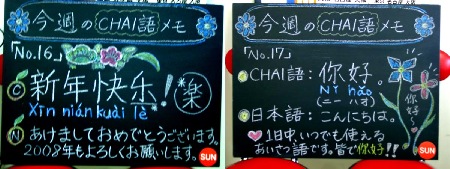 今週のCHAI語メモ
「No.16」
C 新年快乐! 楽
Xīn nián kuài lè
N あけましておめでとうございます。
2008年もよろしくお願いします。
SUN
今週のCHAI語メモ
「No.17」
CHAI語：你好。
Nǐ hǎo
(ニーハオ)
日本語：こんにちは。
1日中、いつでも使える
あいさつ語です。皆で你好!!
你好～
SUN